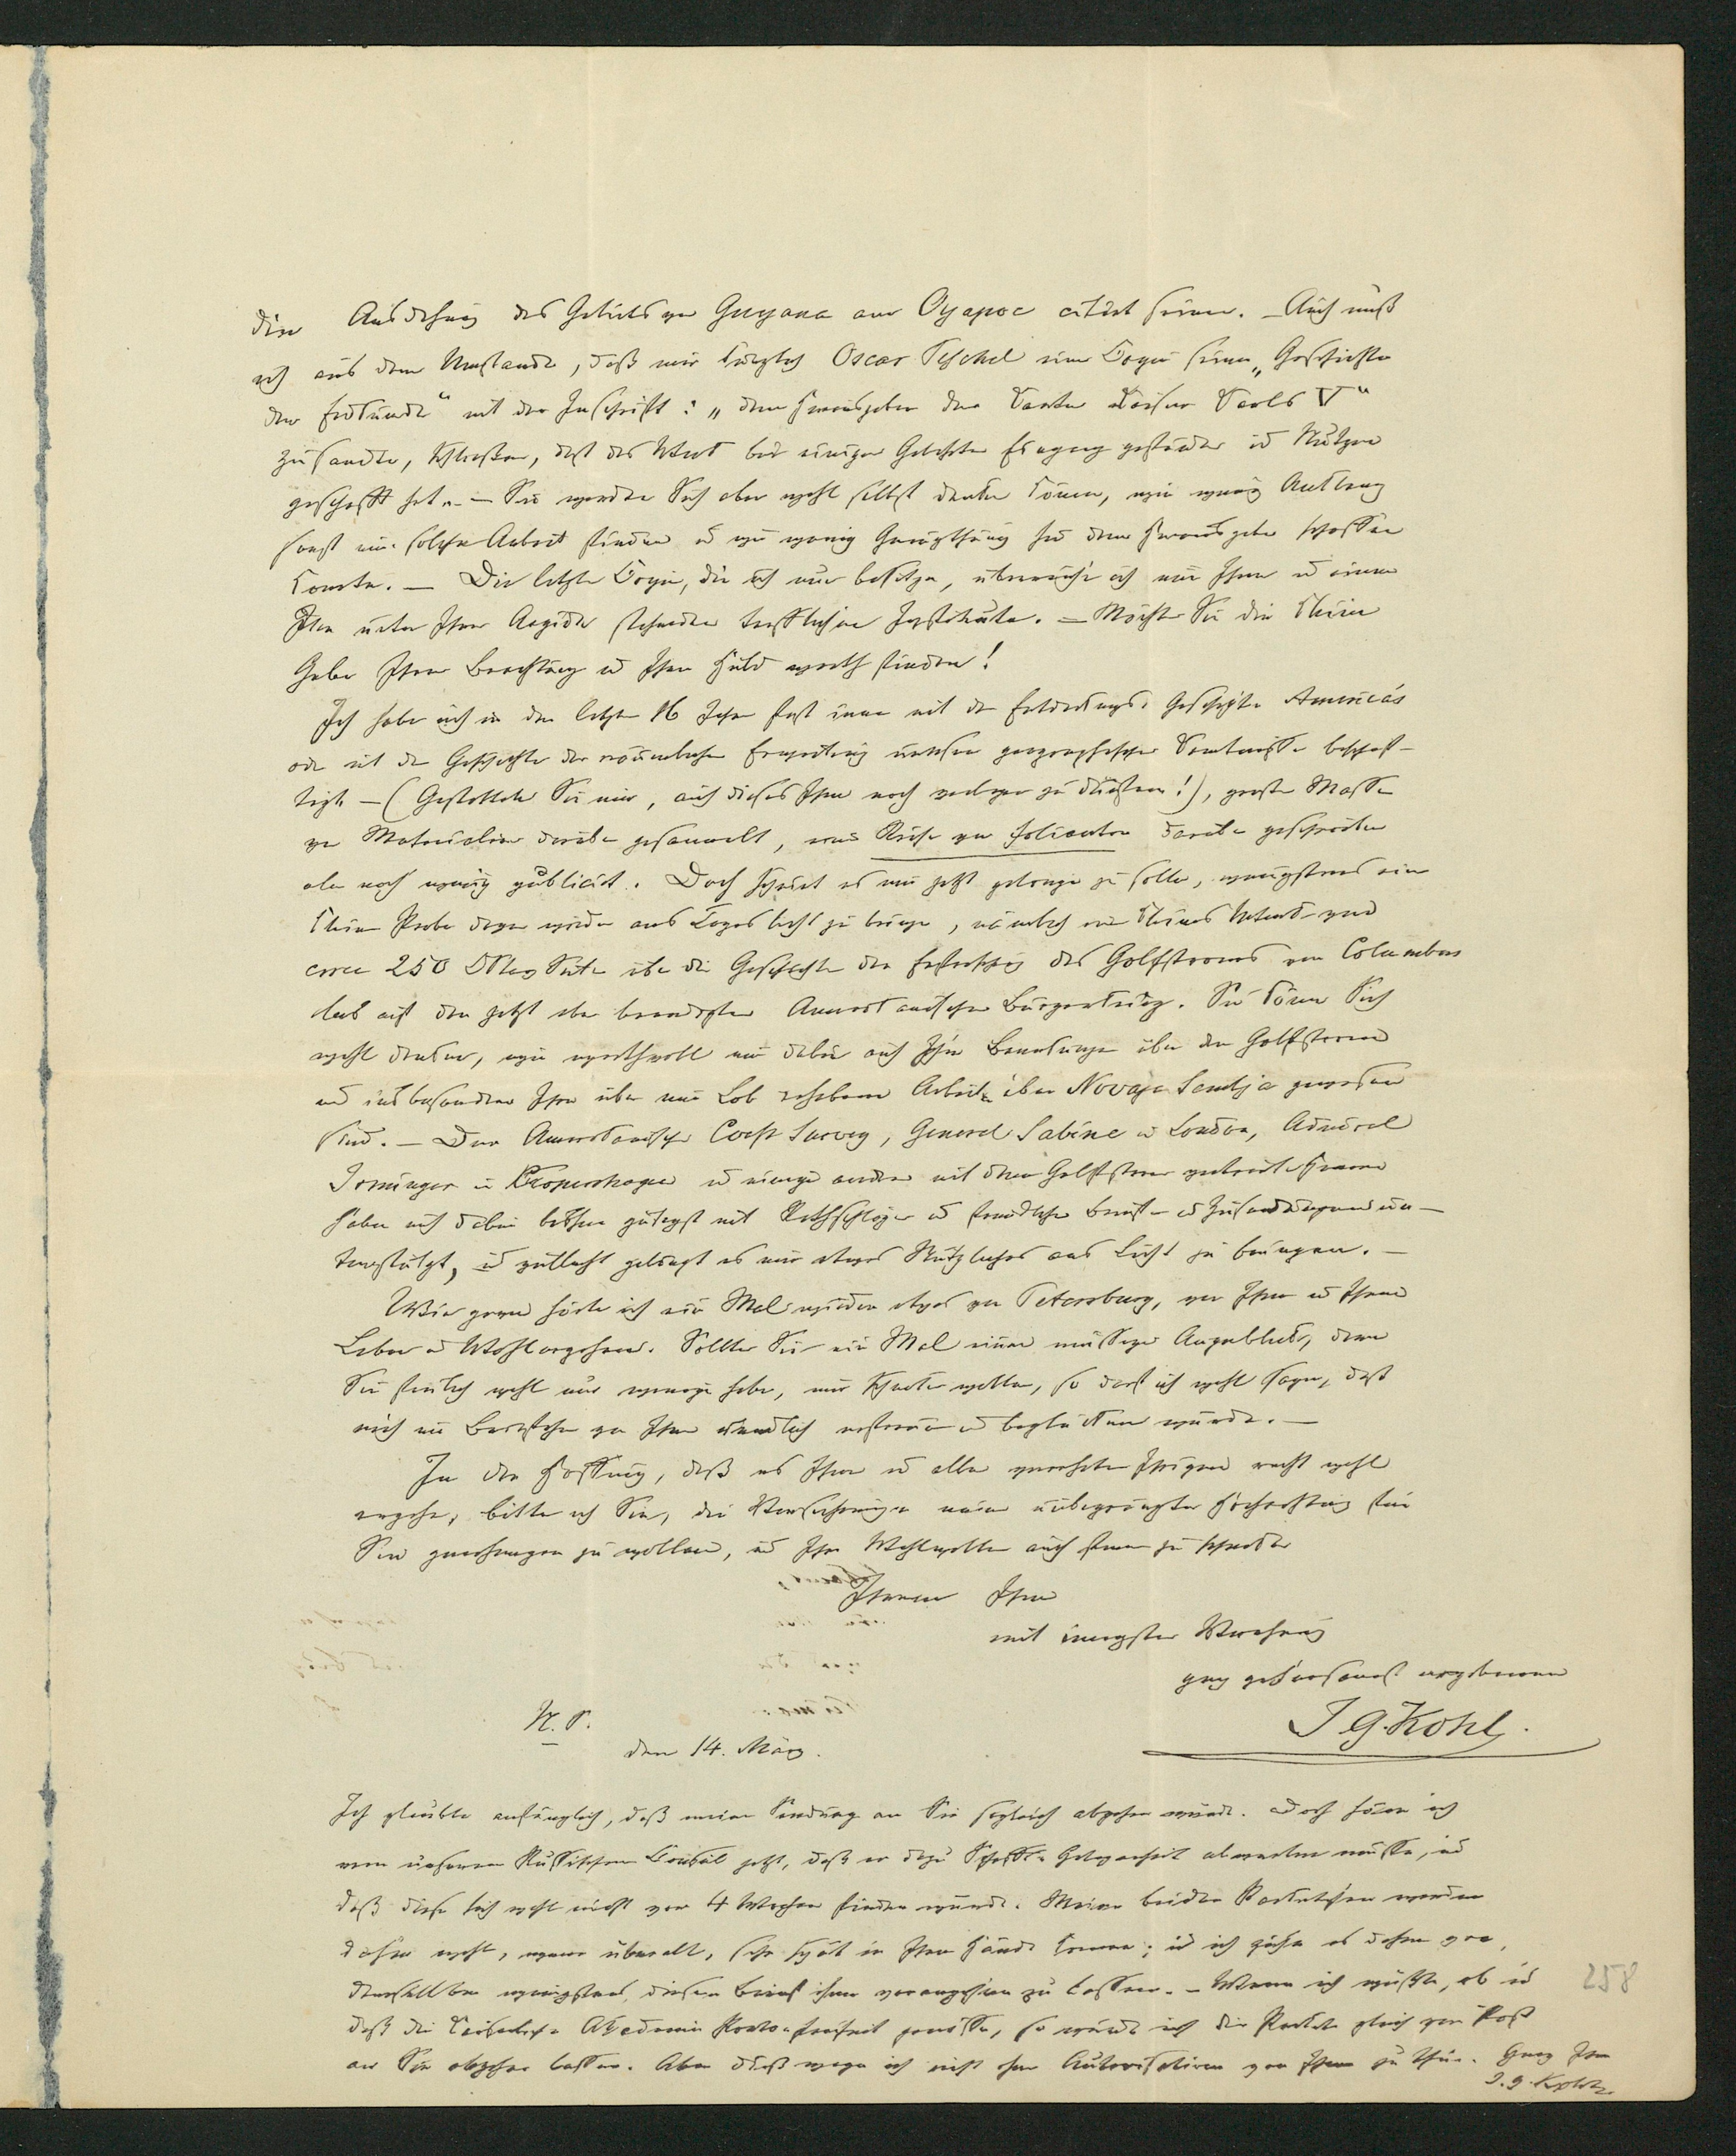 die Ausdehnung des Gebiets von Guyana am Oyapoc citirt haben. – Auch muß
ich aus dem Umstande, daß mir kürzlich Oscar Peschel eine Copie seiner „Geschichte
der Erdkunde“ mit der Inschrift: „dem Herausgeber der Karten Kaiser Carls V“
zusandte, schließen, daß das Werk bei einigen Gelehrten Eingang gefunden und Nutzen
geschafft hat. – Sie werden Sich aber wohl selbst denken können, wie wenig Anklang
sonst eine solche Arbeit finden und wie wenig Genugthuung sie dem Herausgeber schaffen
konnte. – Die letzte Copie, die ich nur besitze, überreiche ich nun Ihnen und einem
unter Ihrer Aegide stehenden trefflichen Institute. – Möchten Sie die kleine
Gabe Ihrer Beachtung und Ihrer Huld werth finden!
Ich habe mich in den letzten 16 Jahren fast immer mit der Entdeckungs-Geschichte Americas
oder mit der Geschichte der räumlichen Erweiterung unserer geographischen Kenntnisse beschäf-
tigt – (Gestatten Sie mir, auch dieses Ihnen noch zu äußern!), große Massen
von Materialien darüber gesammelt, eine Reihe von Folianten darüber geschrieben
aber noch wenig publicirt. Doch scheint es mir jetzt gelingen zu sollen, wenigstens eine
kleine Probe davon wieder ans Tageslicht zu bringen, nämlich ein kleines Werk von
circa 250 Seiten über die Geschichte der Erforschung des Golfstroms von Columbus
bis auf den jetzt eben beendigten Amerikanischen Bürgerkrieg. Sie können Sich
wohl denken, wie werthvoll mir dabei auch Ihre Bemerkungen über den Golfstrom
und insbesondere Ihre über mein Lob erhabenen Arbeiten über Novaja Semlja gewesen
sind. – Der Amerikanische Coast Survey, General Sabine in London, Admiral
Irminger in Kopenhagen und einige andere mit dem Golfstrom vertraute Herren
haben mich dabei bisher gütigst mit Rathschlägen und freundlichen Briefen und Zusendungen un-
terstützt, und vielleicht gelingt es mir etwas Nützliches ans Licht zu bringen. –
Wie gerne hörte ich ein Mal wieder etwas von Petersburg, von Ihnen und Ihrem
Leben und Wohlergehen. Sollten Sie ein Mal einen müßigen Augenblick, deren
Sie freilich wohl nur wenige haben, mir schenken wollen, so darf ich wohl sagen, daß
mich ein Briefchen von Ihnen unendlich erfreuen und beglücken würde. –
In der Hoffnung, daß es Ihnen und allen verehrten Ihrigen recht wohl
ergehe, bitte ich Sie, die Versicherungen meiner unbegränzten Hochachtung für
Sie genehmigen zu wollen, und Ihr Wohlwollen auch ferner zu schenken
Ihrem Ihnen
mit innigster Verehrung
ganz gehorsamst ergebenen
J G. Kohl.
N. S.
den 14. März.
Ich glaubte anfänglich, daß meine Sendung an Sie sogleich abgehen würde. Doch höre ich
von unserem Russischen Consul jetzt, daß er dazu Schiffs-Gelegenheit abwarten müsse, und
daß diese sich wohl nicht vor 4 Wochen finden würde. Meine beiden Packetchen werden
daher wohl, wenn überall, sehr spät in Ihre Hände kommen; und ich ziehe es daher vor,
wenigstens diesen Brief ihnen vorangehen zu lassen. – Wenn ich wüßte, ob und
daß die Kaiserliche Akademie Porto-Freiheit genösse, so würde ich die Packete gleich per Post
an Sie abgehen lassen. Aber dieß wage ich nicht ohne Autorisation von Ihnen zu thun. Ganz Ihr
J. G. Kohl.
258